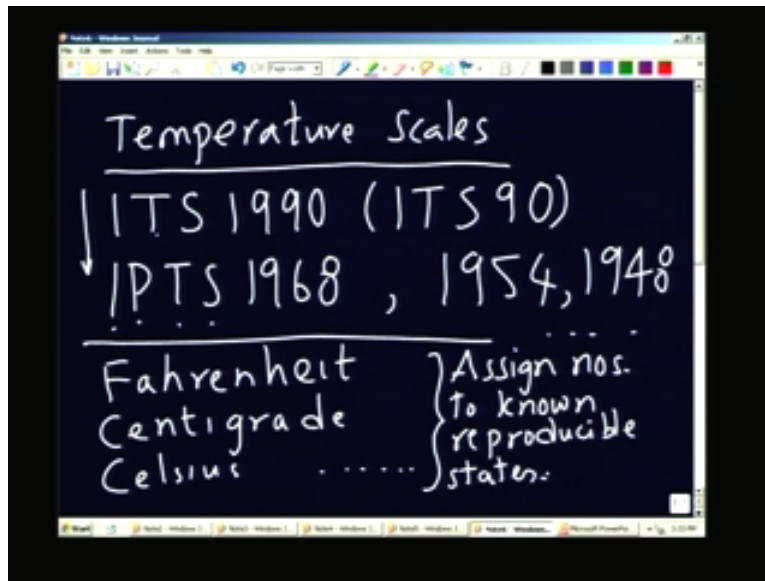 Note6 - Windows Journal
File Edit View Insert Actions Tools Help
Temperature Scales
ITS 1990 (ITS90)
IPTS 1968 , 1954, 1948
Fahrenheit
Centigrade
Celsius ......
Assign nos.
to known
reproducible
states.
Start